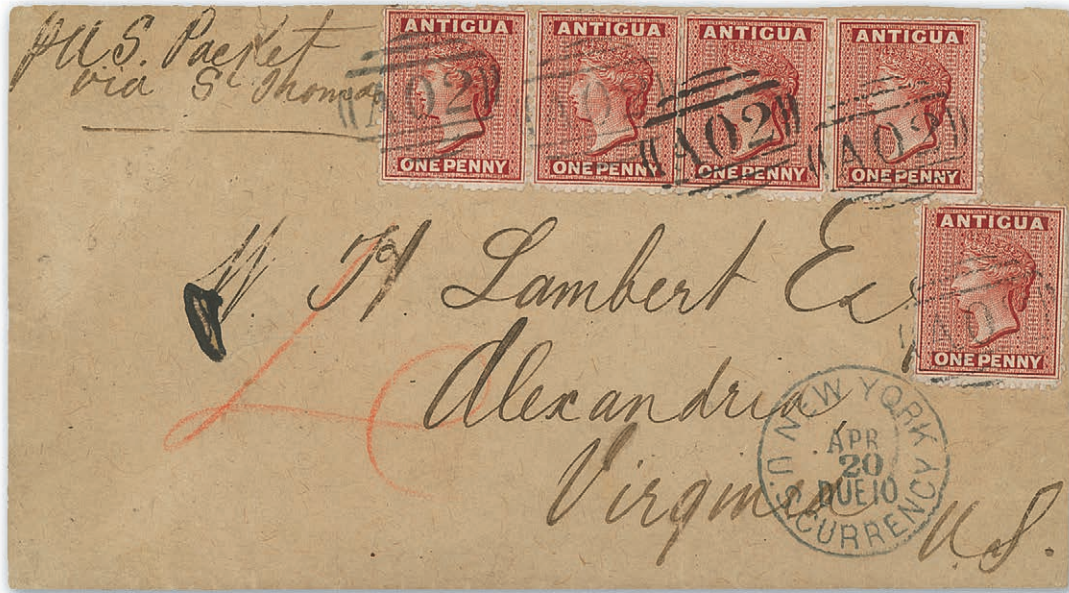 pr U.S. Packet
via St Thomas
ANTIGUA
ONE PENNY
ANTIGUA
ONE PENNY
ANTIGUA
ONE PENNY
ANTIGUA
ONE PENNY
A02
A02
A02
A02
ANTIGUA
ONE PENNY
A02
H Lambert Es
Alexandria
Virginia
U.S.
NEW YORK
APR
20
DUE 10
U.S. CURRENCY